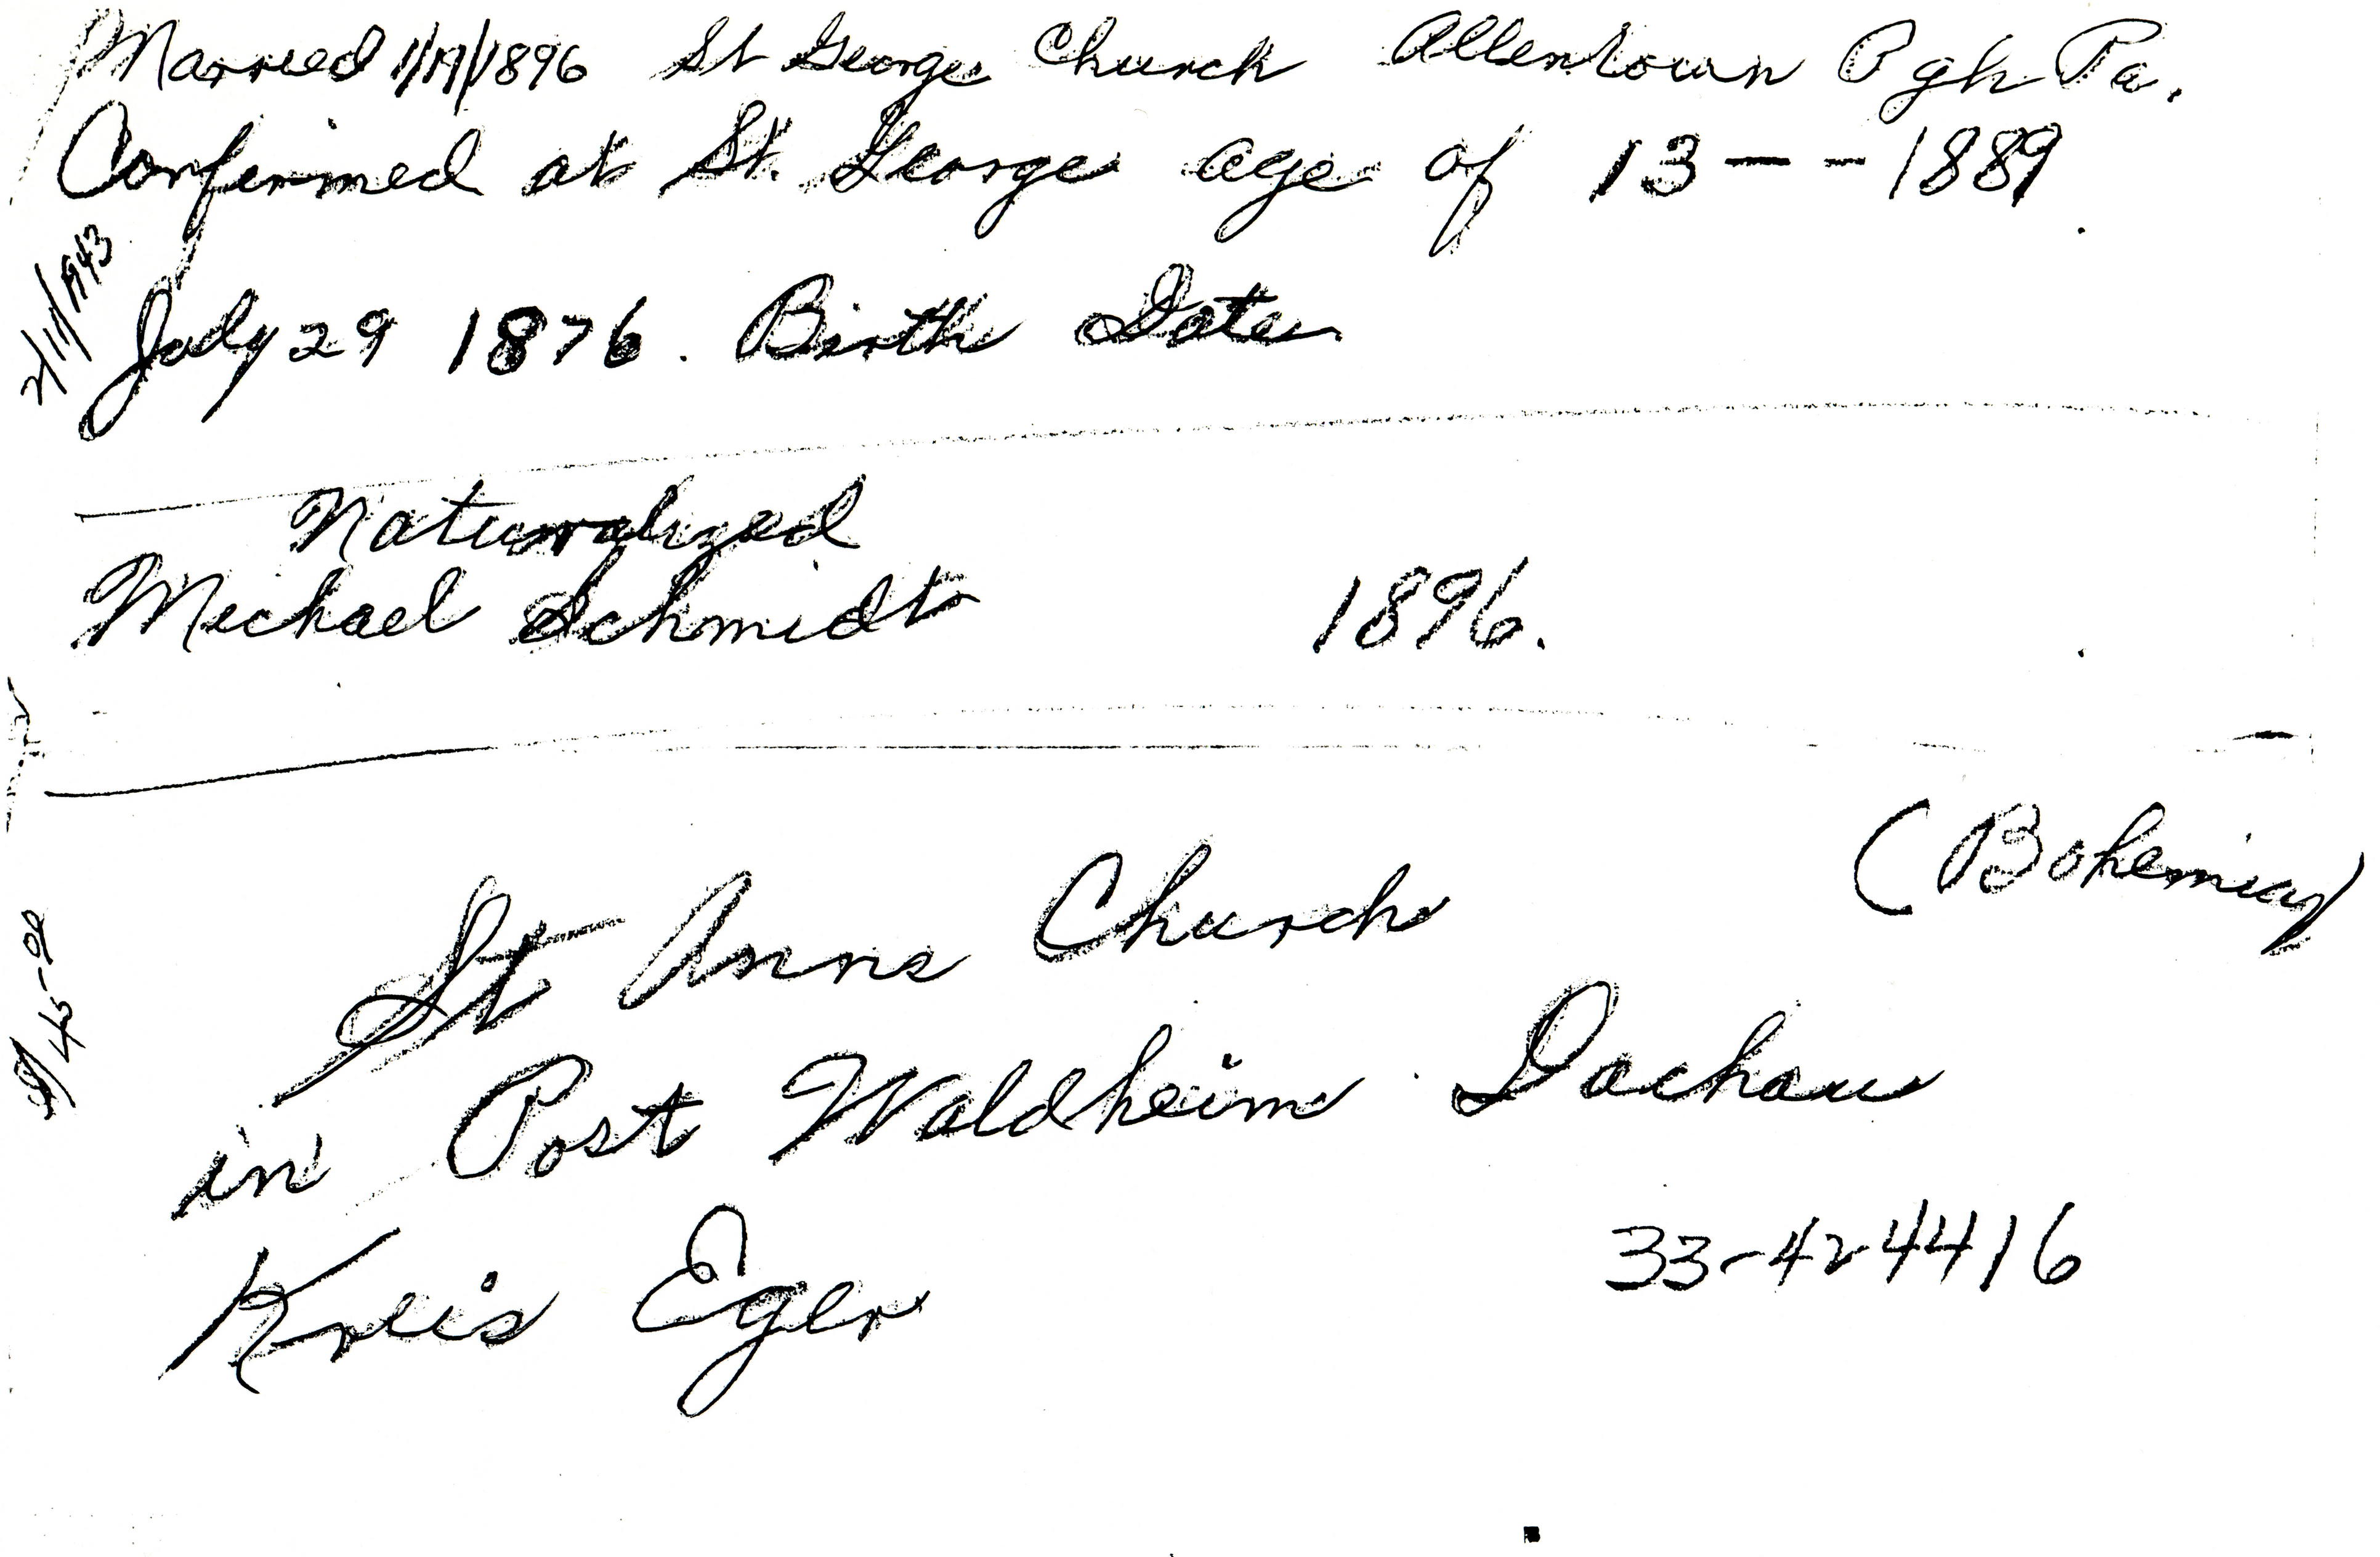 Married 1/19/1896 St George Church Allentown Pgh Pa.
Confirmed at St. George age of 13 -- 1889
2/11/1943
July 29 1876. Birth Date
Naturalized
Michael Schmidt 1896.
(Bohemia)
St Anns Church
in Post Waldheim Dachau
Kreis Eger
33-424416